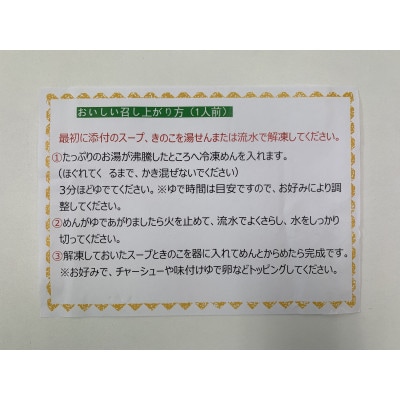 おいしい召し上がり方（1人前）
最初に添付のスープ、きのこを湯せんまたは流水で解凍してください。
①たっぷりのお湯が沸騰したところへ冷凍めんを入れます。
（ほぐれてく るまで、かき混ぜないでください）
3分ほどゆでてください。※ゆで時間は目安ですので、お好みにより調
整してください。
②めんがゆであがりましたら火を止めて、流水でよくさらし、水をしっかり
切ってください。
③解凍しておいたスープときのこを器に入れてめんとからめたら完成です。
※お好みで、チャーシューや味付けゆで卵などトッピングしてください。